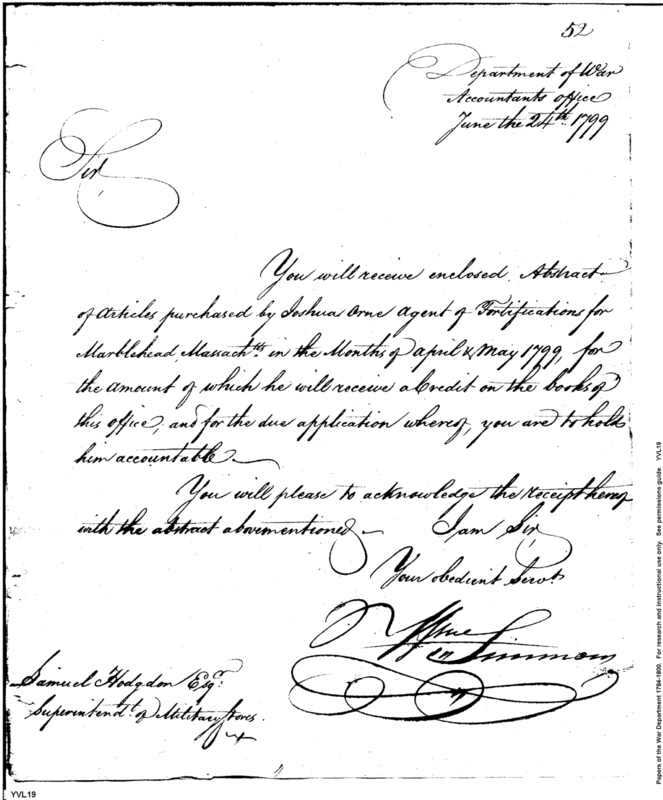 52
Department of War
Accountants office
June the 24th. 1799
Sir,
You will receive enclosed, Abstract
of articles purchased by Joshua Orne Agent of Fortifications for
Marblehead, Massachtts. in the Months of April & May 1799, for
the amount of which he will receive a Credit on the books of
this office; and for the due application whereof, you are to hold
him accountable.
You will please to acknowledge the receipt hereof
with the abstract abovementioned.
I am Sir,
Your obedient Servt.
Wm Simmons
Samuel Hodgdon Esqr.
Superintendt. of Military Stores.
YVL19
Papers of the War Department 1784-1800. For research and instructional use only. See permissions guide. YVL19